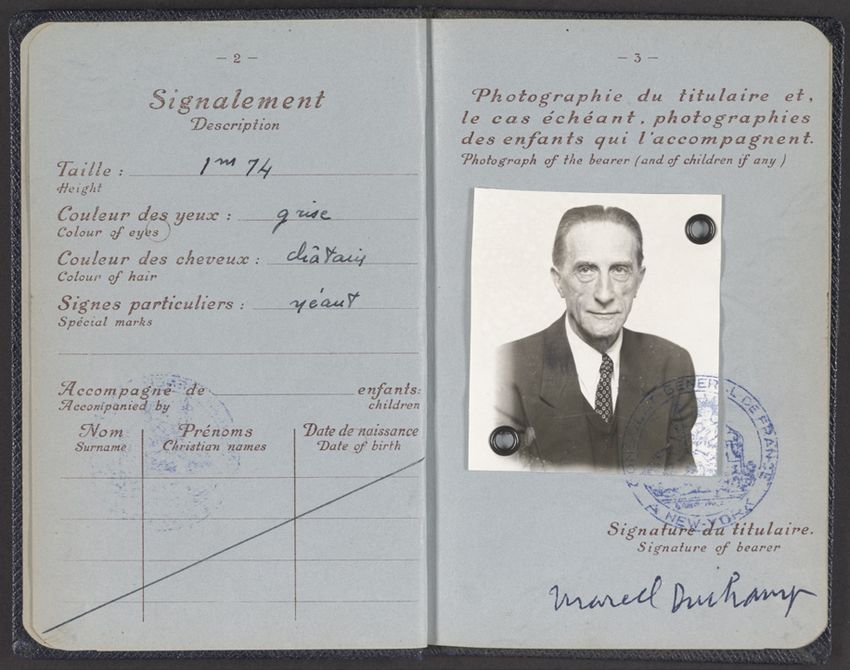 — 2 —
Signalement
Description
Taille : 1m 74
Height
Couleur des yeux : grise
Colour of eyes
Couleur des cheveux : châtain
Colour of hair
Signes particuliers : néant
Spécial marks
Accompagné de enfants:
Accompanied by children
Nom Prénoms Date de naissance
Surname Christian names Date of birth
— 3 —
Photographie du titulaire et,
le cas échéant, photographies
des enfants qui l'accompagnent.
Photograph of the bearer (and of children if any)
CONSULAT GENERAL DE FRANCE
A NEW-YORK
Signature du titulaire.
Signature of bearer
Marcel Duchamp